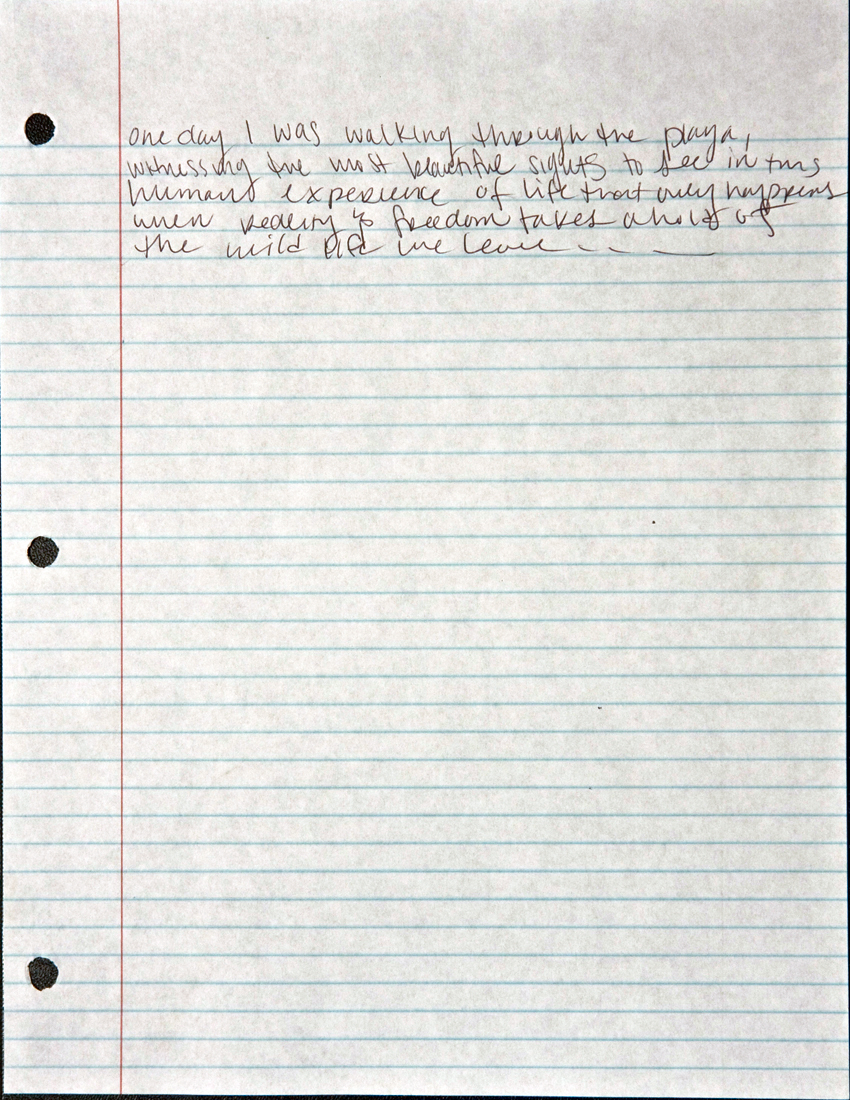 one day I was walking through the playa,
witnessing the most beautiful sights to see in this
human experience of life that only happens
when & freedom takes ahold of
the wild life we leave - - —